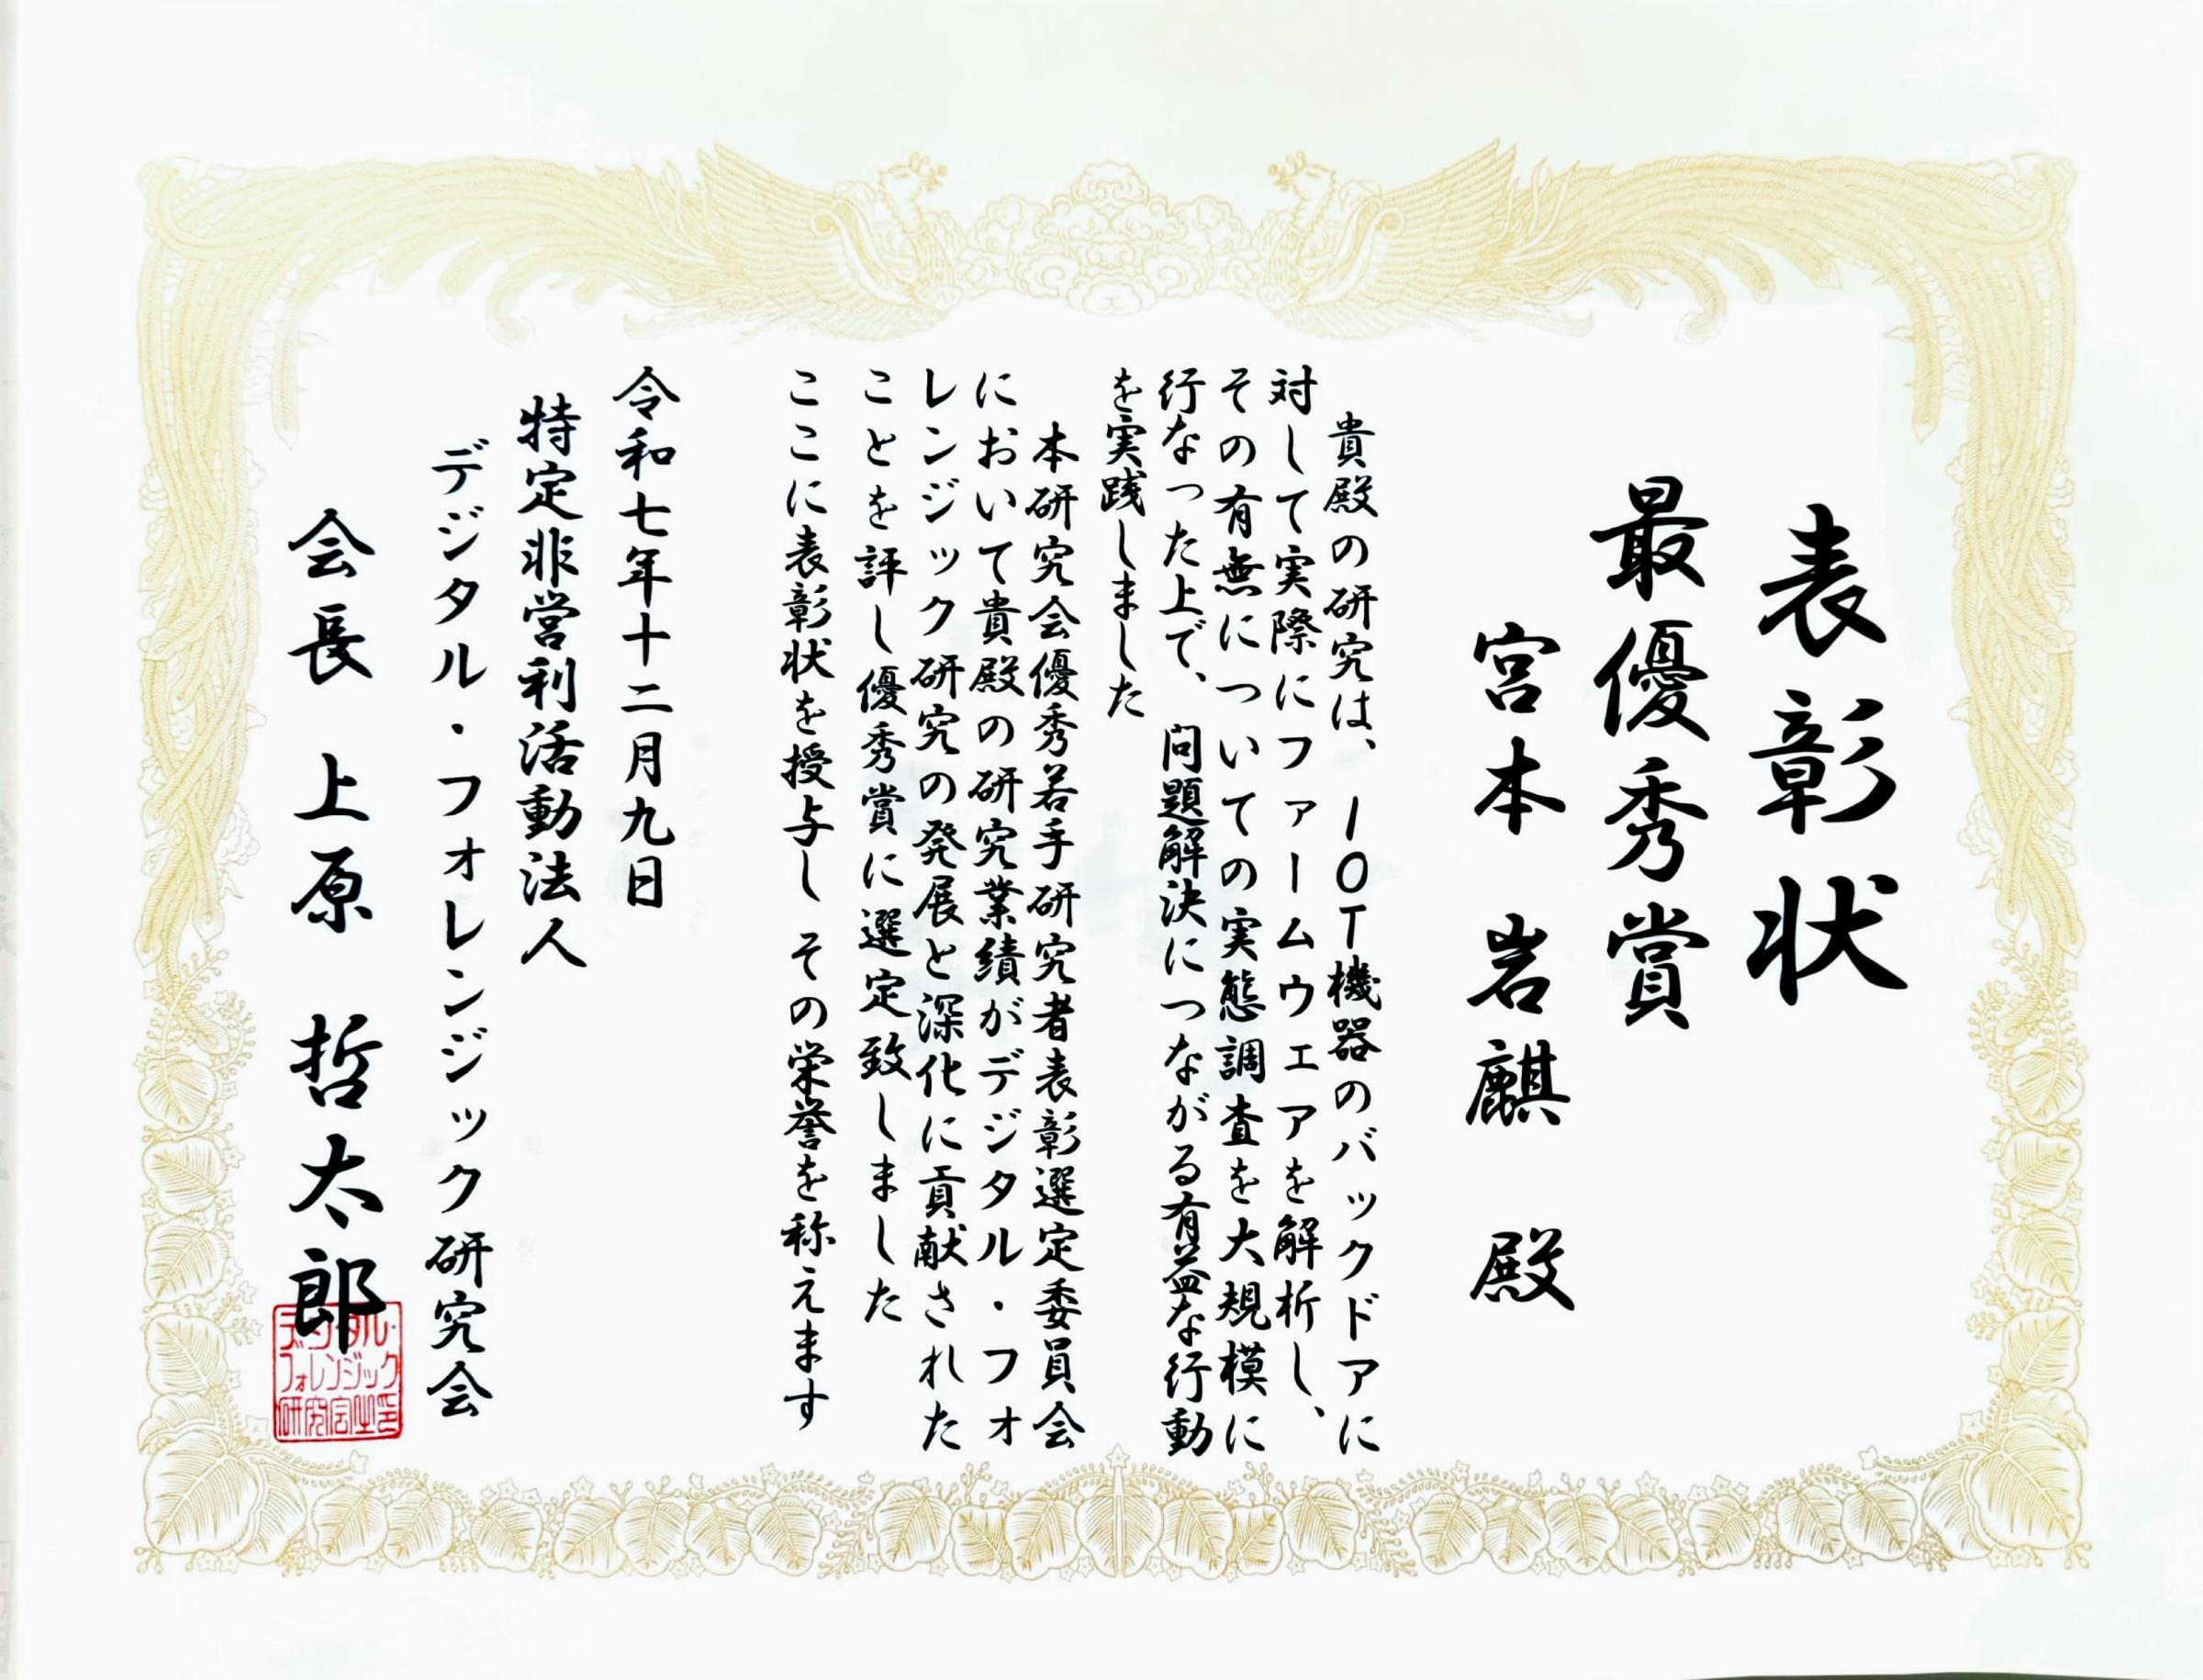 表彰状
最優秀賞
宮本 岩麒 殿
貴殿の研究は、IOT機器のバックドアに
対して実際にファームウェアを解析し、
その有無についての実態調査を大規模に
行なった上で、問題解決につながる有益な行動
を実践しました
本研究会優秀若手研究者表彰選定委員会
において貴殿の研究業績がデジタル・フォ
レンジック研究の発展と深化に貢献された
ことを評し優秀賞に選定致しました
ここに表彰状を授与し その栄誉を称えます
令和七年十二月九日
特定非営利活動法人
デジタル・フォレンジック研究会
会長 上原 哲太郎
デジタル・
フォレンジック
研究会